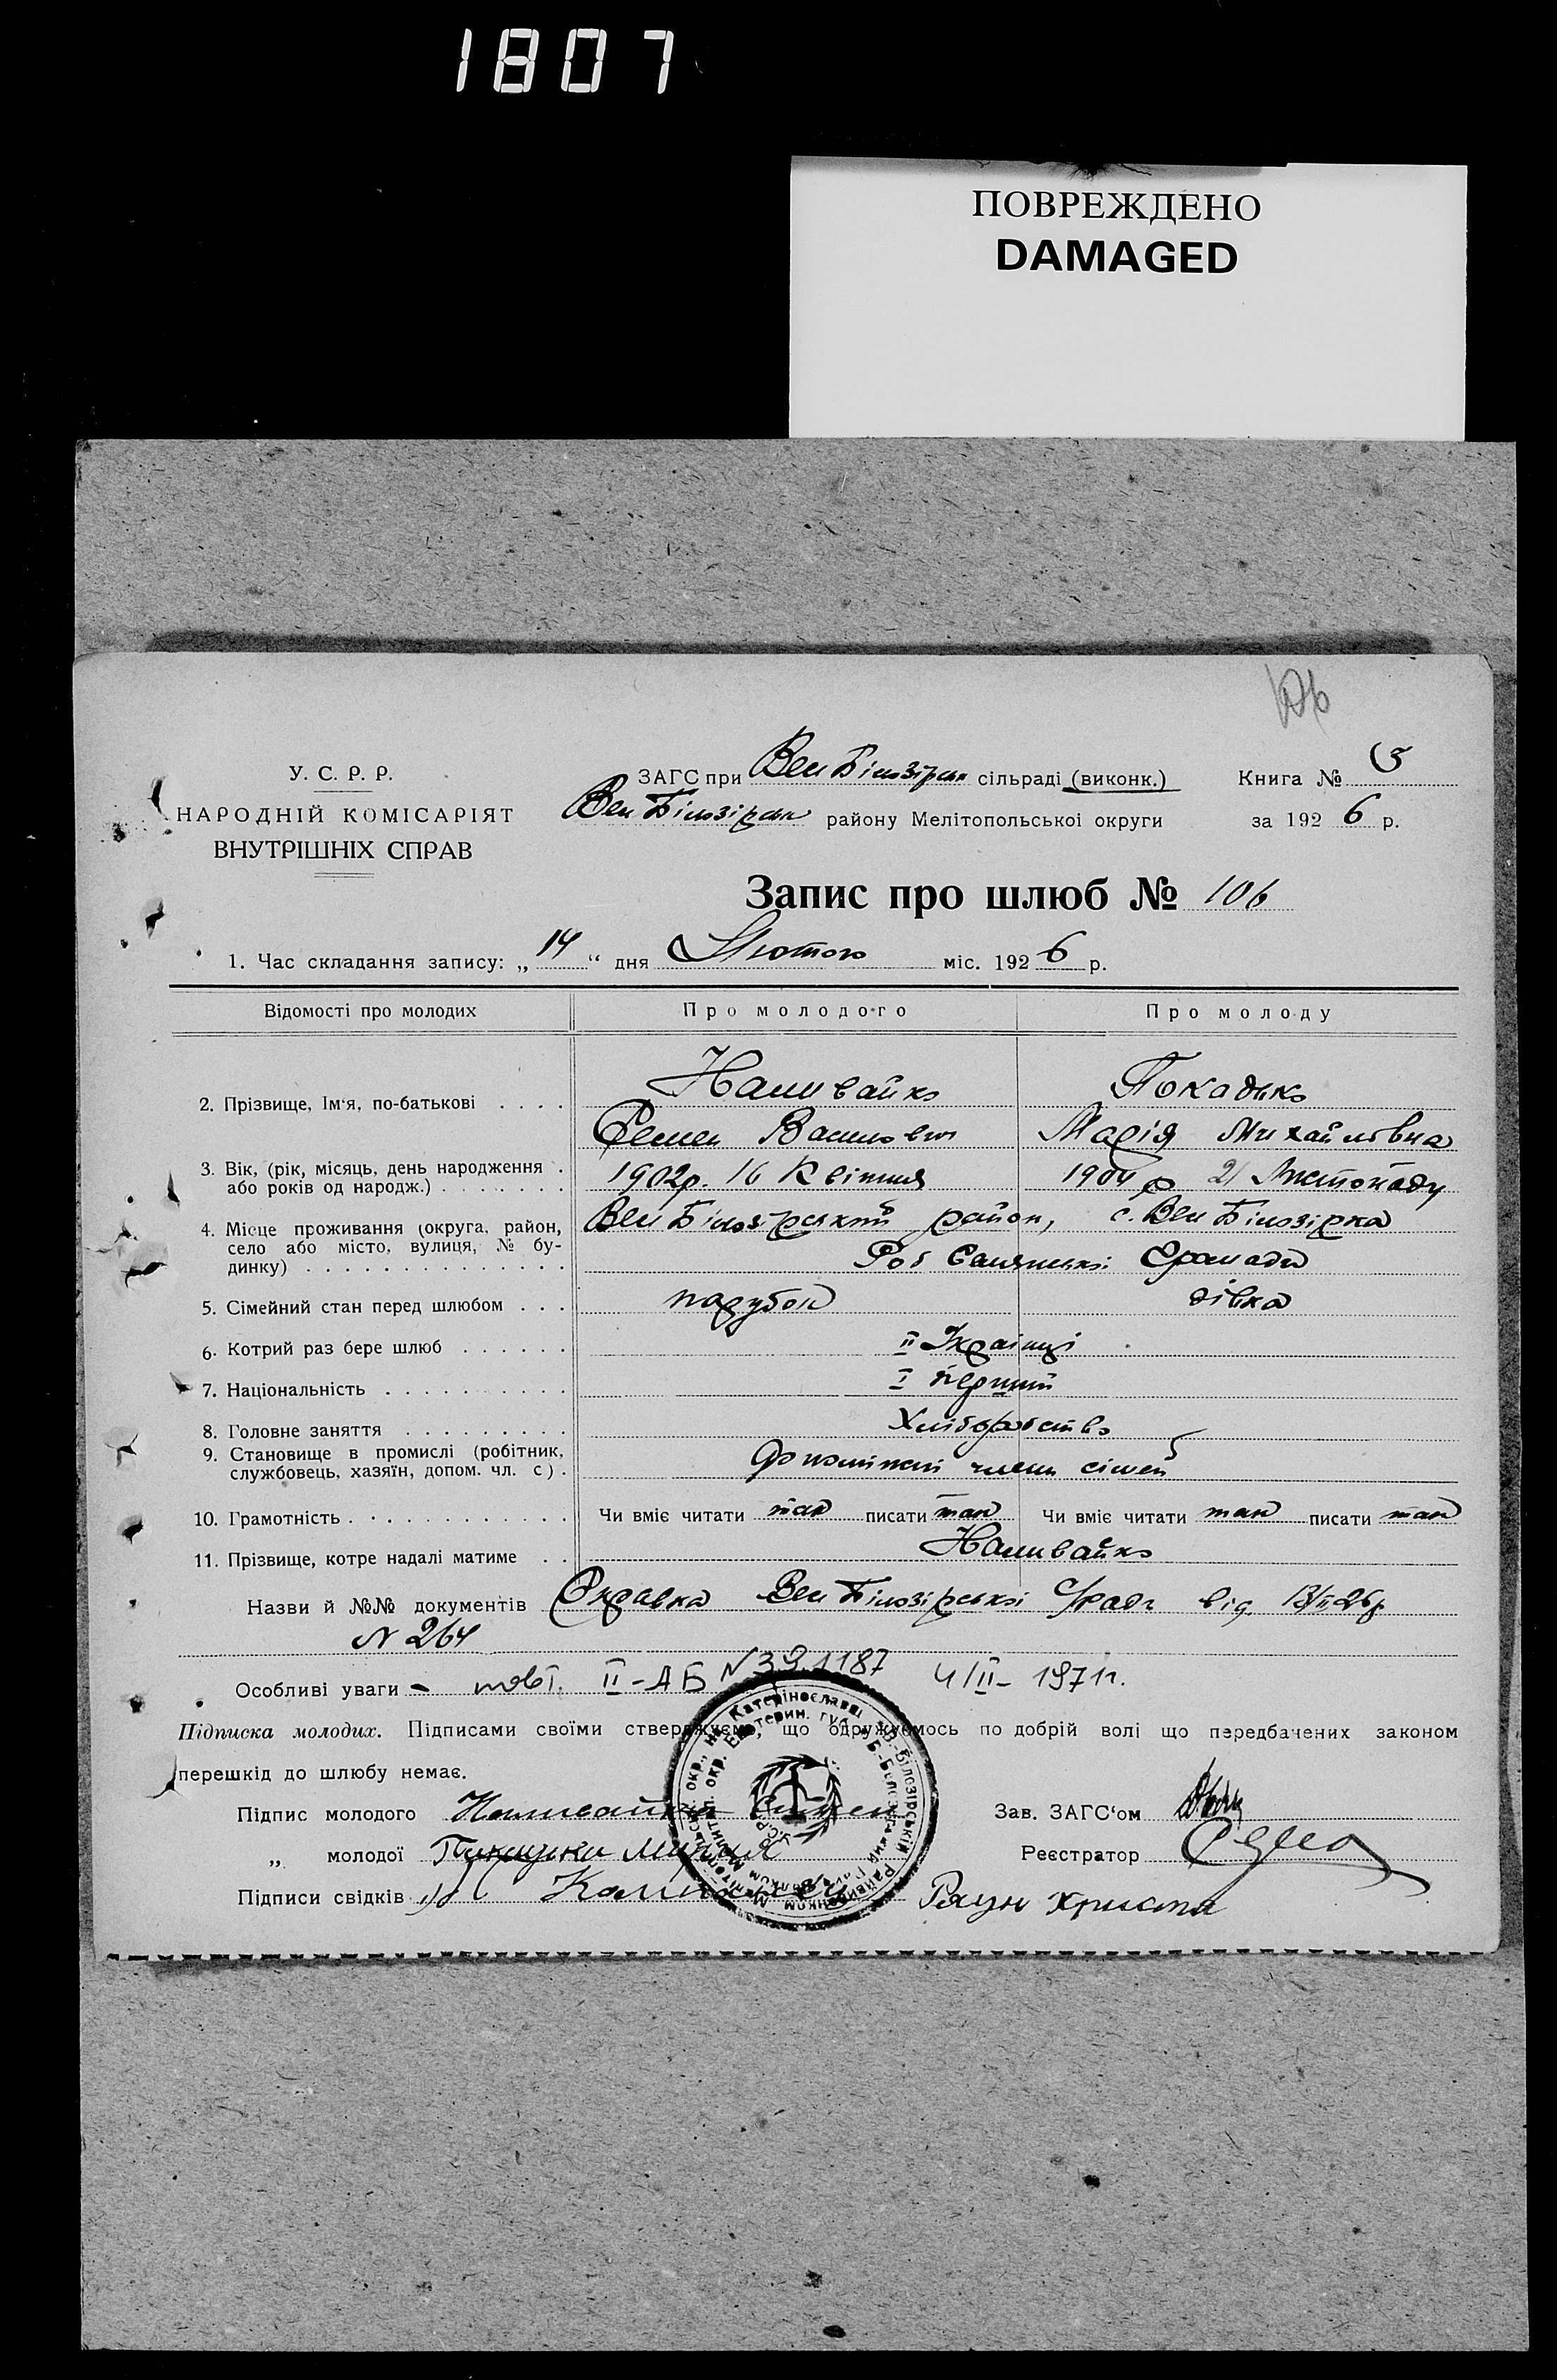 1807
ПОВРЕЖДЕНО
DAMAGED
106
У. С. Р. Р.
НАРОДНІЙ КОМІСАРІЯТ
ВНУТРІШНІХ СПРАВ
ЗАГС при Вел Білозірськ сільраді (виконк.)
Вел Білозірськ району Мелітопольської округи
Книга №
за 1926 р.
Запис про шлюб № 106
1. Час складання запису: „14“ дня Лютого міс. 1926 р.
Відомості про молодих Про молодого Про молоду
2. Прізвище, Ім'я, по-батькові . . . . Наливайко Покадько
Семен Васильович Марія Михайлівна
3. Вік, (рік, місяць, день народження . 1902р. 16 Квітня 1904 р 21 Листопаду
або років од народж.) . . . . . . .
4. Місце проживання (округа, район, Вел Білозірський район, с. Вел Білозірка
село або місто, вулиця, № бу-
динку) . . . . . . . . . . . . . . Роб Селянської Громади
5. Сімейний стан перед шлюбом . . . парубок дівка
6. Котрий раз бере шлюб . . . . . . II Українці
7. Національність . . . . . . . . . . I перший
8. Головне заняття . . . . . . . . . Хліборобство
9. Становище в промислі (робітник, допоміжний член сімей
службовець, хазяїн, допом. чл. с) .
10. Грамотність . . . . . . . . . . . . Чи вміє читати так писати так Чи вміє читати так писати так
11. Прізвище, котре надалі матиме . . Наливайко
Назви й №№ документів Справка Вел Білозірської С/ради від 13/II 26р
N 264
Особливі уваги - повт. II-АБ N 391187 4/II- 1971г.
Підписка молодих. Підписами своїми стверджуємо, що одружуємось по добрій волі що передбачених законом
перешкід до шлюбу немає.
Підпис молодого Наливайко Семен
Зав. ЗАГС'ом
„ молодої Марія
Реєстратор
Підписи свідків